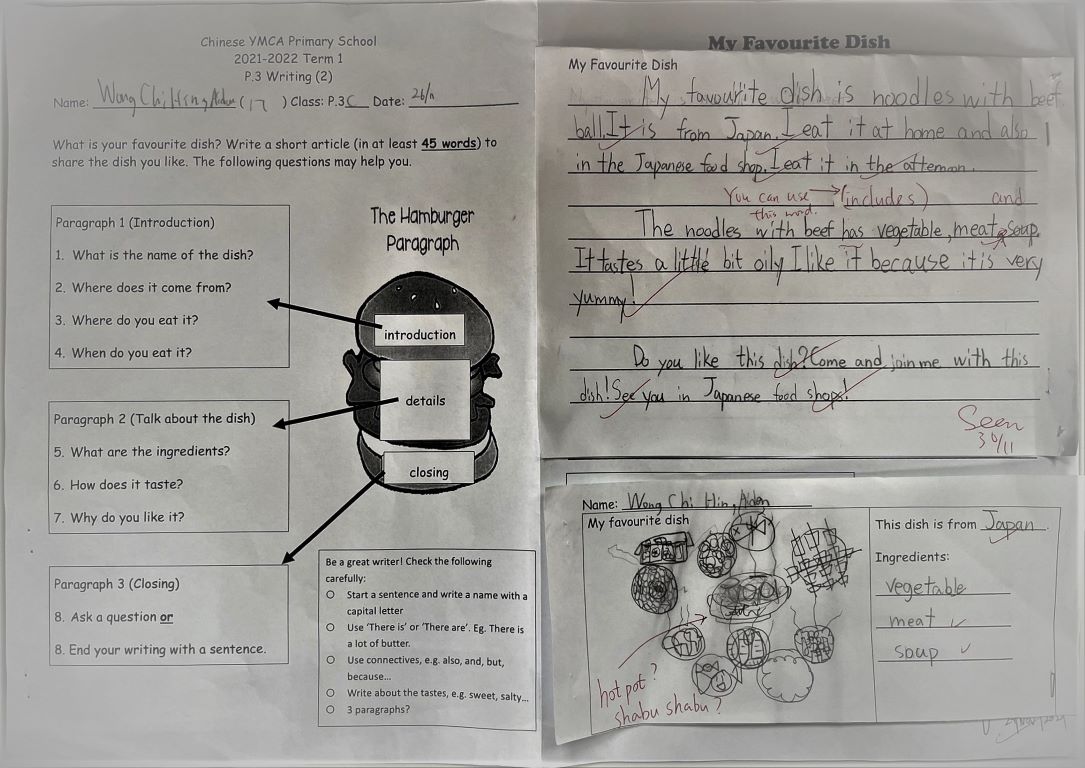 Chinese YMCA Primary School
2021-2022 Term 1
P.3 Writing (2)
Name: Wong Chi Hin, Aiden (17) Class: P.3C Date: 26/11
What is your favourite dish? Write a short article (in at least 45 words) to
share the dish you like. The following questions may help you.
Paragraph 1 (Introduction)
1. What is the name of the dish?
2. Where does it come from?
3. Where do you eat it?
4. When do you eat it?
Paragraph 2 (Talk about the dish)
5. What are the ingredients?
6. How does it taste?
7. Why do you like it?
Paragraph 3 (Closing)
8. Ask a question or
8. End your writing with a sentence.
The Hamburger
Paragraph
introduction
details
closing
Be a great writer! Check the following
carefully:
Start a sentence and write a name with a
capital letter
Use 'There is' or 'There are'. Eg. There is
a lot of butter.
Use connectives, e.g. also, and, but,
because...
Write about the tastes, e.g. sweet, salty...
3 paragraphs?
My Favourite Dish
My Favourite Dish
My favourite dish is noodles with beef
ball. It is from Japan. I eat it at home and also
in the Japanese food shop. I eat it in the afternoon.
You can use → (includes) and
this word.
The noodles with beef has vegetable, meat, soup.
It tastes a little bit oily I like it because it is very
yummy!
Do you like this dish? Come and join me with this
dish! See you in Japanese food shops!
Seen
30/11
Name: Wong Chi Hin, Aiden
My favourite dish
hot pot?
shabu shabu?
This dish is from Japan.
Ingredients:
vegetable
meat
soup